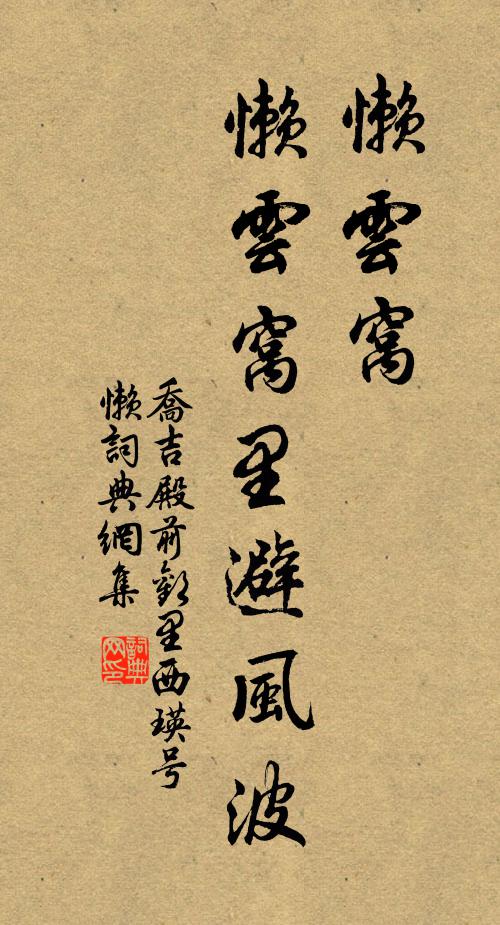 懶雲窩
懶雲窩里避風波
喬吉殿前歡里西瑛号
懶詞典網集
詞典网印